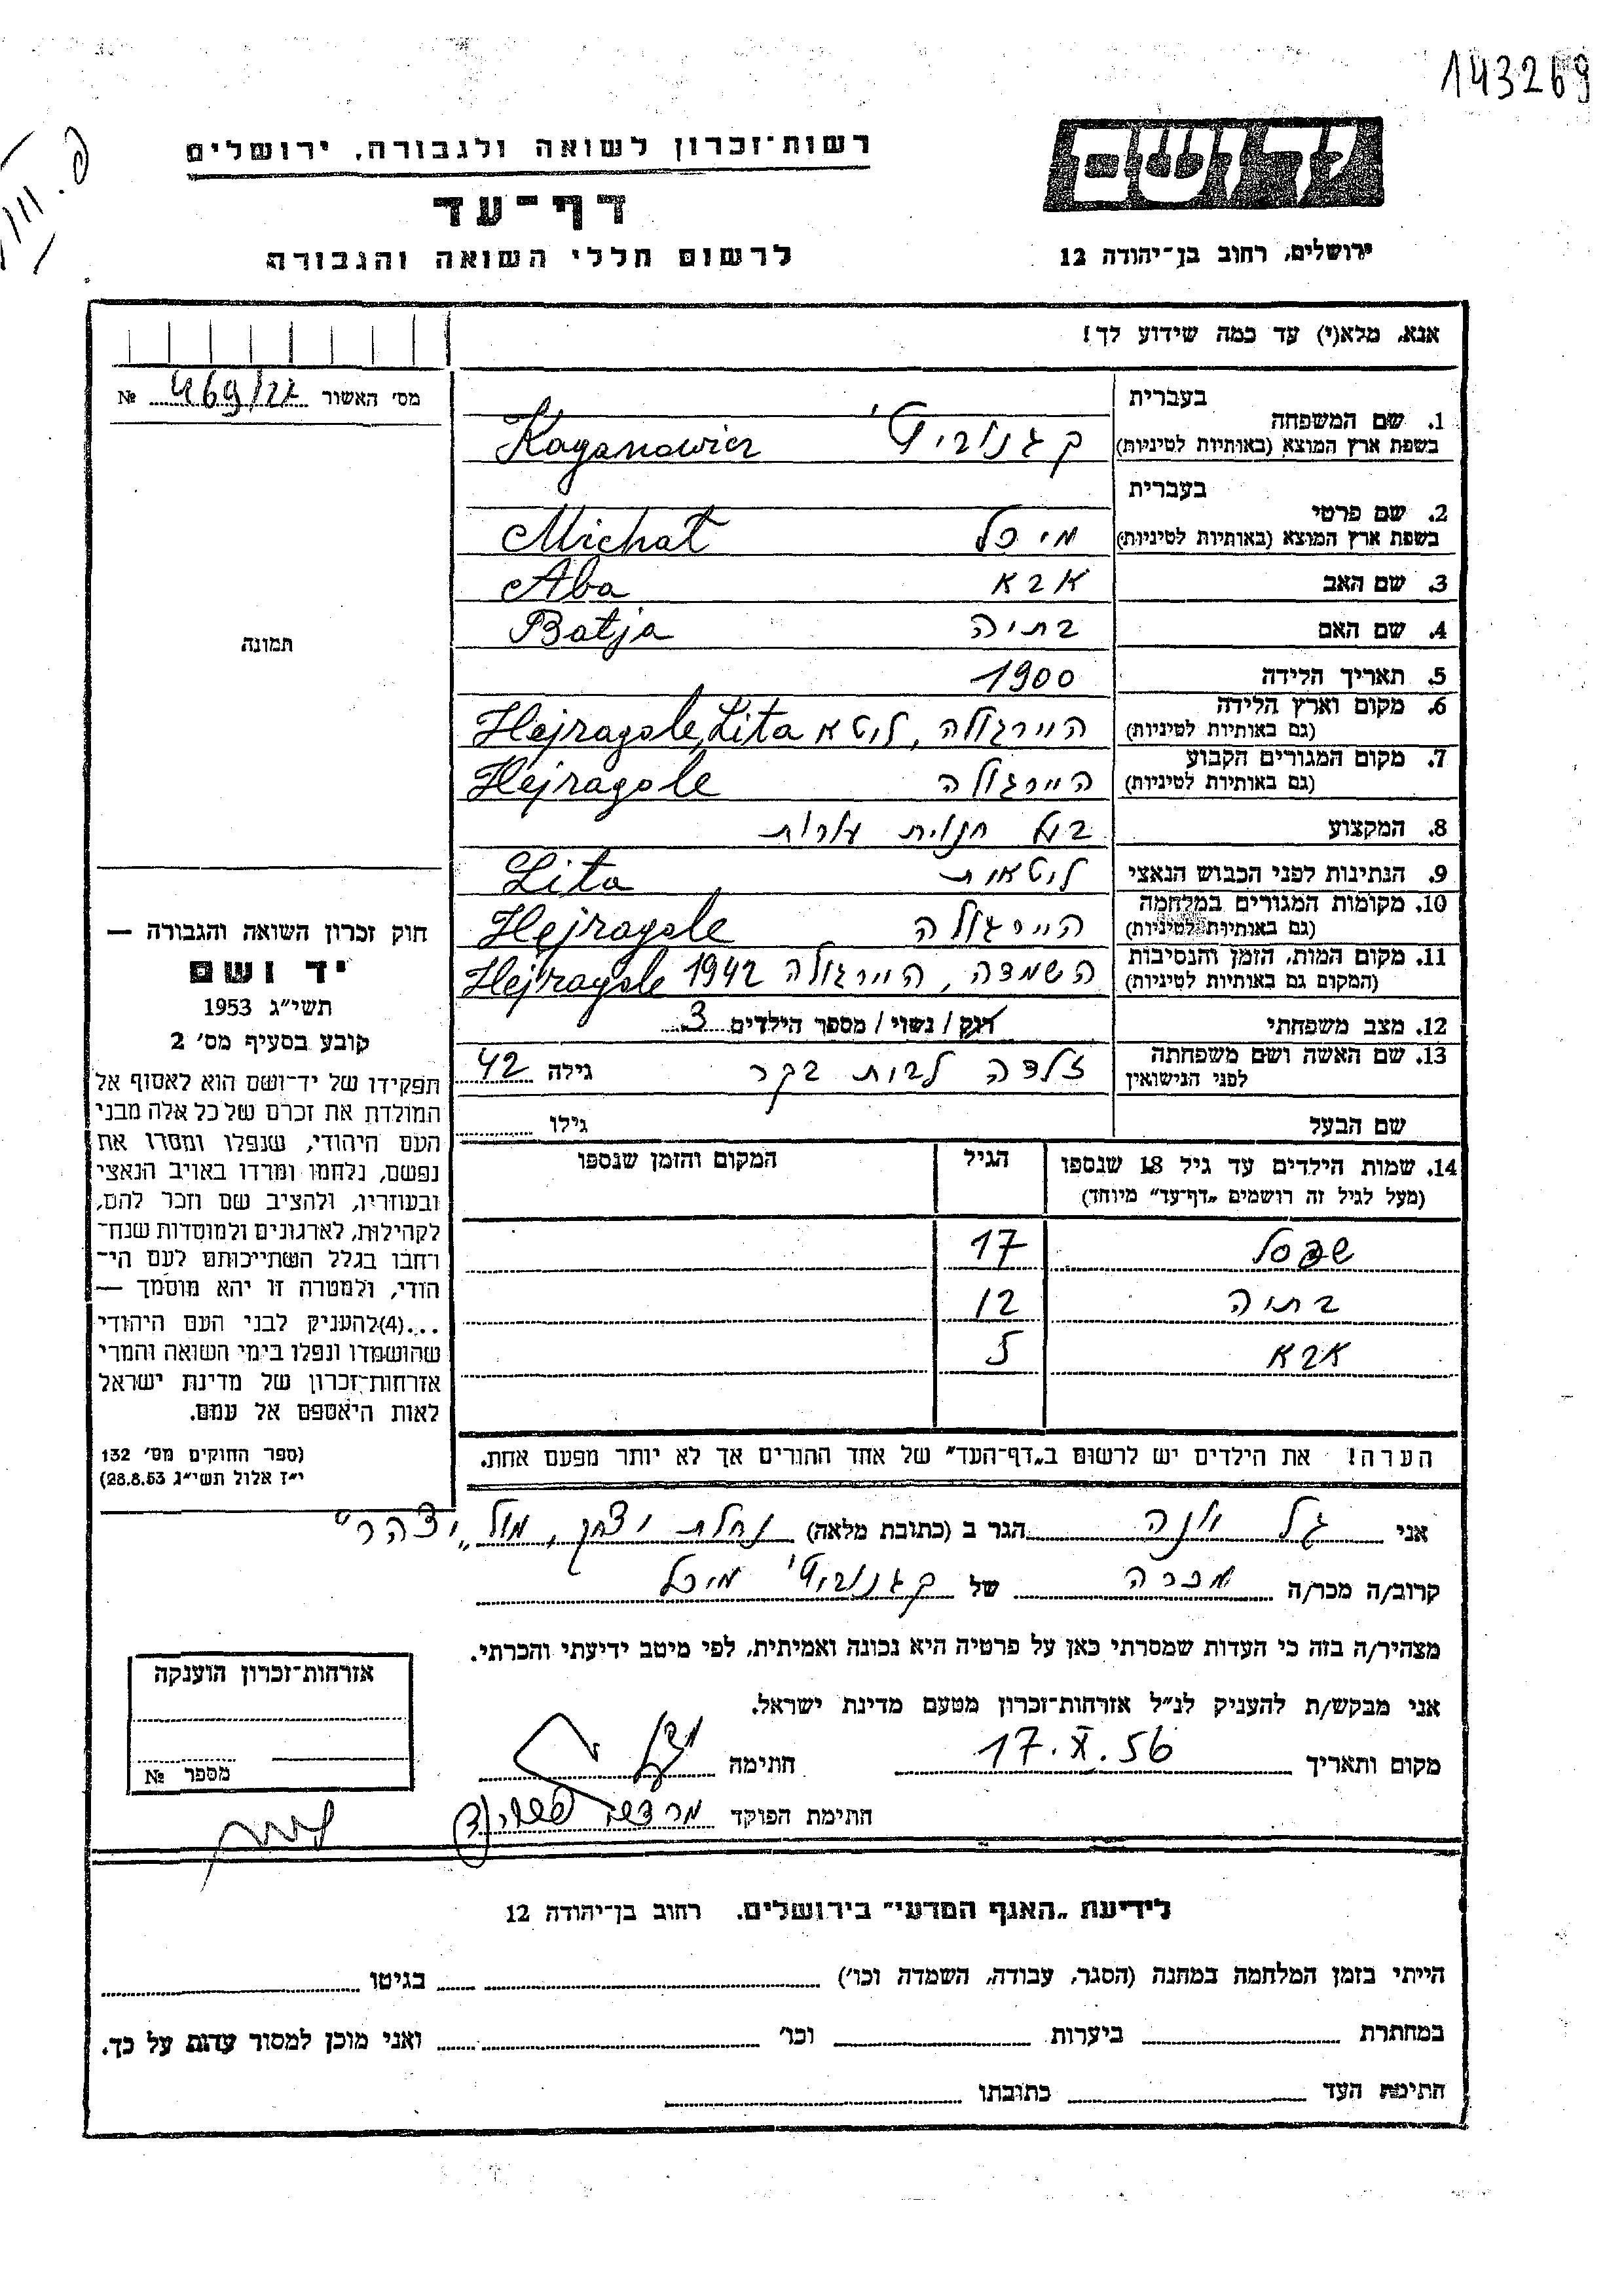 143269
רשות־זכרון לשואה ולגבורה, ירושלים
דף־עד
לרשום חללי השואה והגבורה
יד ושם
ירושלים, רחוב בן־יהודה 12
אנא, מלא(י) עד כמה שידוע לך!
מס׳ האשור 469/22 №
1. שם המשפחה בעברית קגנוביץ'
בשפת ארץ המוצא (באותיות לטיניות) Kaganowicz
2. שם פרטי בעברית מיכל
בשפת ארץ המוצא (באותיות לטיניות) Michał
3. שם האב אבא Aba
4. שם האם בתיה Batja
5. תאריך הלידה 1900
6. מקום וארץ הלידה היירגולה, ליטא Hejragole, Lita
(גם באותיות לטיניות)
7. מקום המגורים הקבוע היירגולה Hejragole
(גם באותיות לטיניות)
8. המקצוע בעל חנות עורות
9. הנתינות לפני הכבוש הנאצי ליטאית Lita
10. מקומות המגורים במלחמה היירגולה Hejragole
(גם באותיות לטיניות)
11. מקום המות, הזמן והנסיבות השמדה, היירגולה 1942 Hejragole
(המקום גם באותיות לטיניות)
12. מצב משפחתי רווק / נשוי / מספר הילדים 3
13. שם האשה ושם משפחתה זלדה לבית בקר גילה 42
לפני הנישואין
שם הבעל גילו
14. שמות הילדים עד גיל 18 שנספו הגיל המקום והזמן שנספו
(מעל לגיל זה רושמים „דף־עד” מיוחד)
שבסל 17
בתיה 12
אבא 5
הערה! את הילדים יש לרשום ב„דף־העד” של אחד ההורים אך לא יותר מפעם אחת.
תמונה
חוק זכרון השואה והגבורה —
יד ושם
תשי״ג 1953
קובע בסעיף מס׳ 2
תפקידו של יד־ושם הוא לאסוף אל
המולדת את זכרם של כל אלה מבני
העם היהודי, שנפלו ומסרו את
נפשם, נלחמו ומרדו באויב הנאצי
ובעוזריו, ולהציב שם וזכר להם,
לקהילות, לארגונים ולמוסדות שנח־
רבו בגלל השתייכותם לעם הי־
הודי, ולמטרה זו יהא מוסמך —
...(4)להעניק לבני העם היהודי
שהושמדו ונפלו בימי השואה והמרי
אזרחות־זכרון של מדינת ישראל
לאות היאספם אל עמם.
(ספר החוקים מס׳ 132
י״ז אלול תשי״ג 28.8.53)
אני גל יונה הגר ב (כתובת מלאה) נחלת יצחק, מול „יצהר”
קרוב/ה מכר/ה מכרה של קגנוביץ' מיכל
מצהיר/ה בזה כי העדות שמסרתי כאן על פרטיה היא נכונה ואמיתית, לפי מיטב ידיעתי והכרתי.
אני מבקש/ת להעניק לנ״ל אזרחות־זכרון מטעם מדינת ישראל.
מקום ותאריך 17.X.56 חתימה
חתימת הפוקד מרדכי
אזרחות־זכרון הוענקה
מספר №
לידיעת „האגף המדעי” בירושלים. רחוב בן־יהודה 12
הייתי בזמן המלחמה במחנה (הסגר, עבודה, השמדה וכו׳) בגיטו
במחתרת ביערות וכו׳ ואני מוכן למסור עדות על כך.
חתימת העד כתובתו